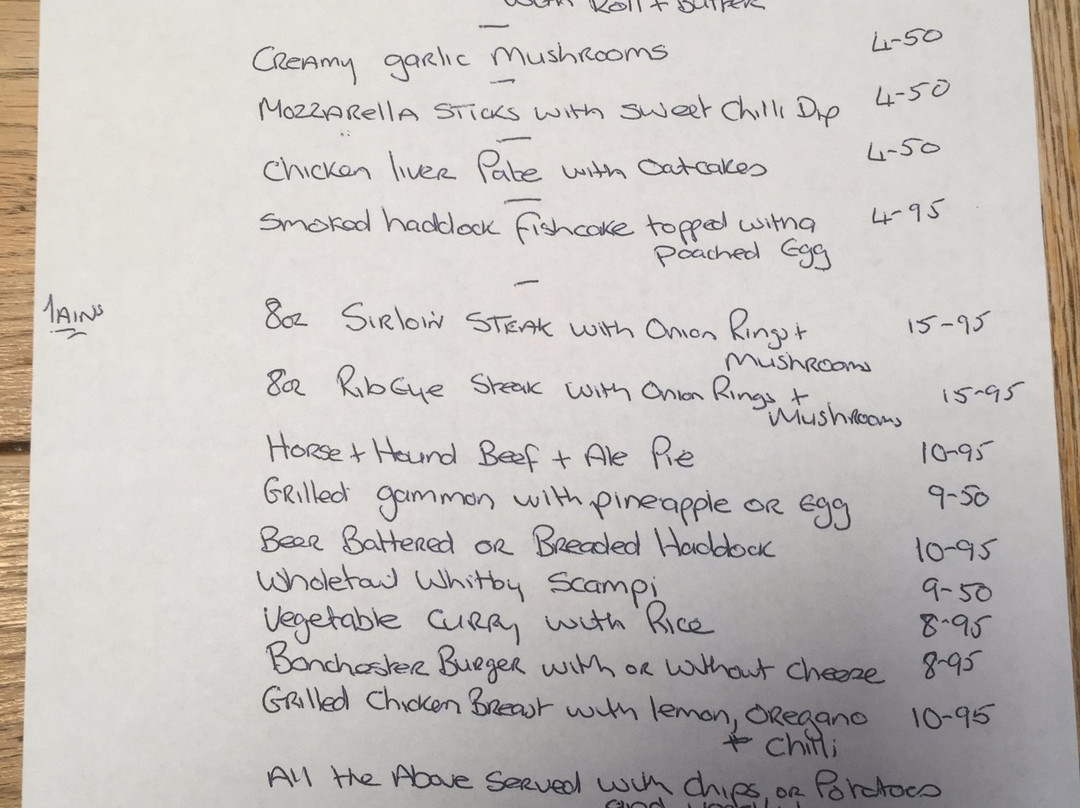 with Roll + Butter
Creamy garlic Mushrooms 4-50
Mozzarella Sticks with Sweet Chilli Dip 4-50
Chicken liver Pate with Oatcakes 4-50
Smoked haddock fishcake topped with a 4-95
poached Egg
8oz Sirloin Steak with Onion Rings + 15-95
Mushrooms
8oz RibEye Steak with Onion Rings + 15-95
Mushrooms
Horse + Hound Beef + Ale Pie 10-95
Grilled gammon with pineapple or Egg 9-50
Beer Battered or Breaded Haddock 10-95
Wholetail Whitby Scampi 9-50
Vegetable Curry with Rice 8-95
Bonchester Burger with or without cheese 8-95
Grilled Chicken Breast with lemon, Oregano 10-95
+ Chilli
All the Above Served with chips, or Potatoes